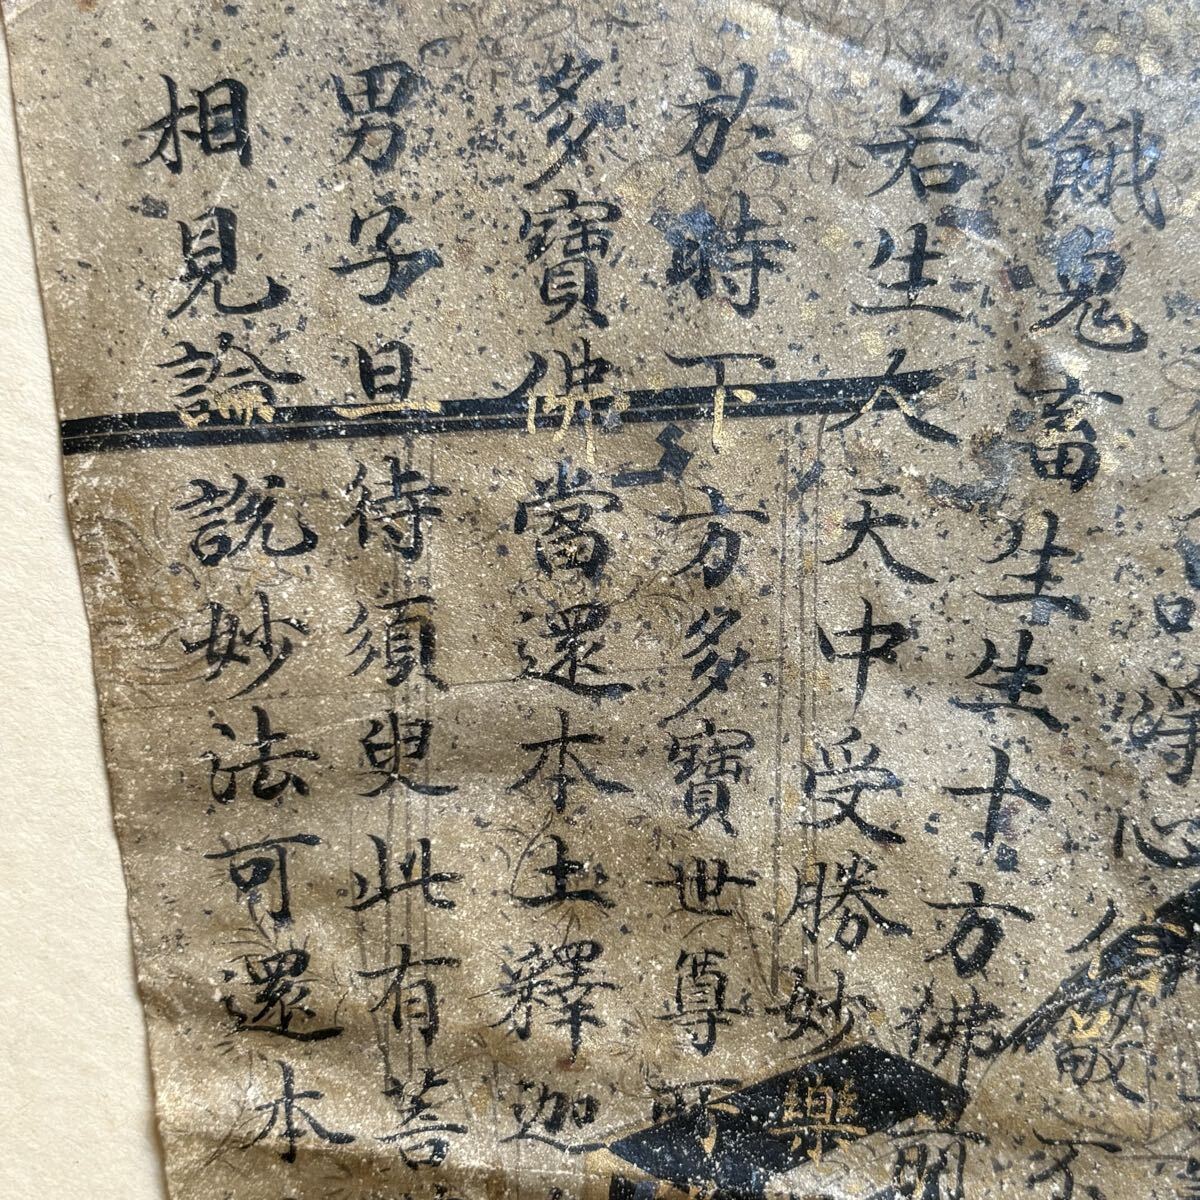 淨心信敬不
餓鬼畜生生十方佛前
若生人天中受勝妙樂
於時下方多寶世尊所
多寶佛當還本土釋迦
男子且待須臾此有菩
相見論說妙法可還本